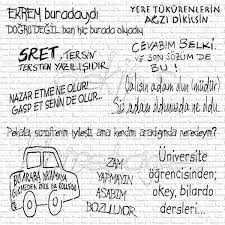 EKREM buradaydı
DOĞRU DEĞİL ben hiç burada olmadım
YERE TÜKÜRENLERİN
AĞZI DİKİLSİN
SRET, TERSİN
TERSTEN YAZILIŞIDIR
CEVABIM BELKİ
VE SON SÖZÜM DE
BU!
NAZAR ETME NE OLUR!
GASP ET SENİN DE OLUR...
Çalışın adam olun ünlüdür!
Siz adam oldunuzda ne oldu
Pekala, şizofrenim iyileşti, ama kendim aradığımda neredeyim?
BU ARABA YIKAMAYA
GİTMEDEN ÖNCE DE KIRLIYDI
ZAM
YAPMAYIN
ASABIM
BOZULUYOR
Üniversite
öğrencisinden;
okey, bilardo
dersleri...